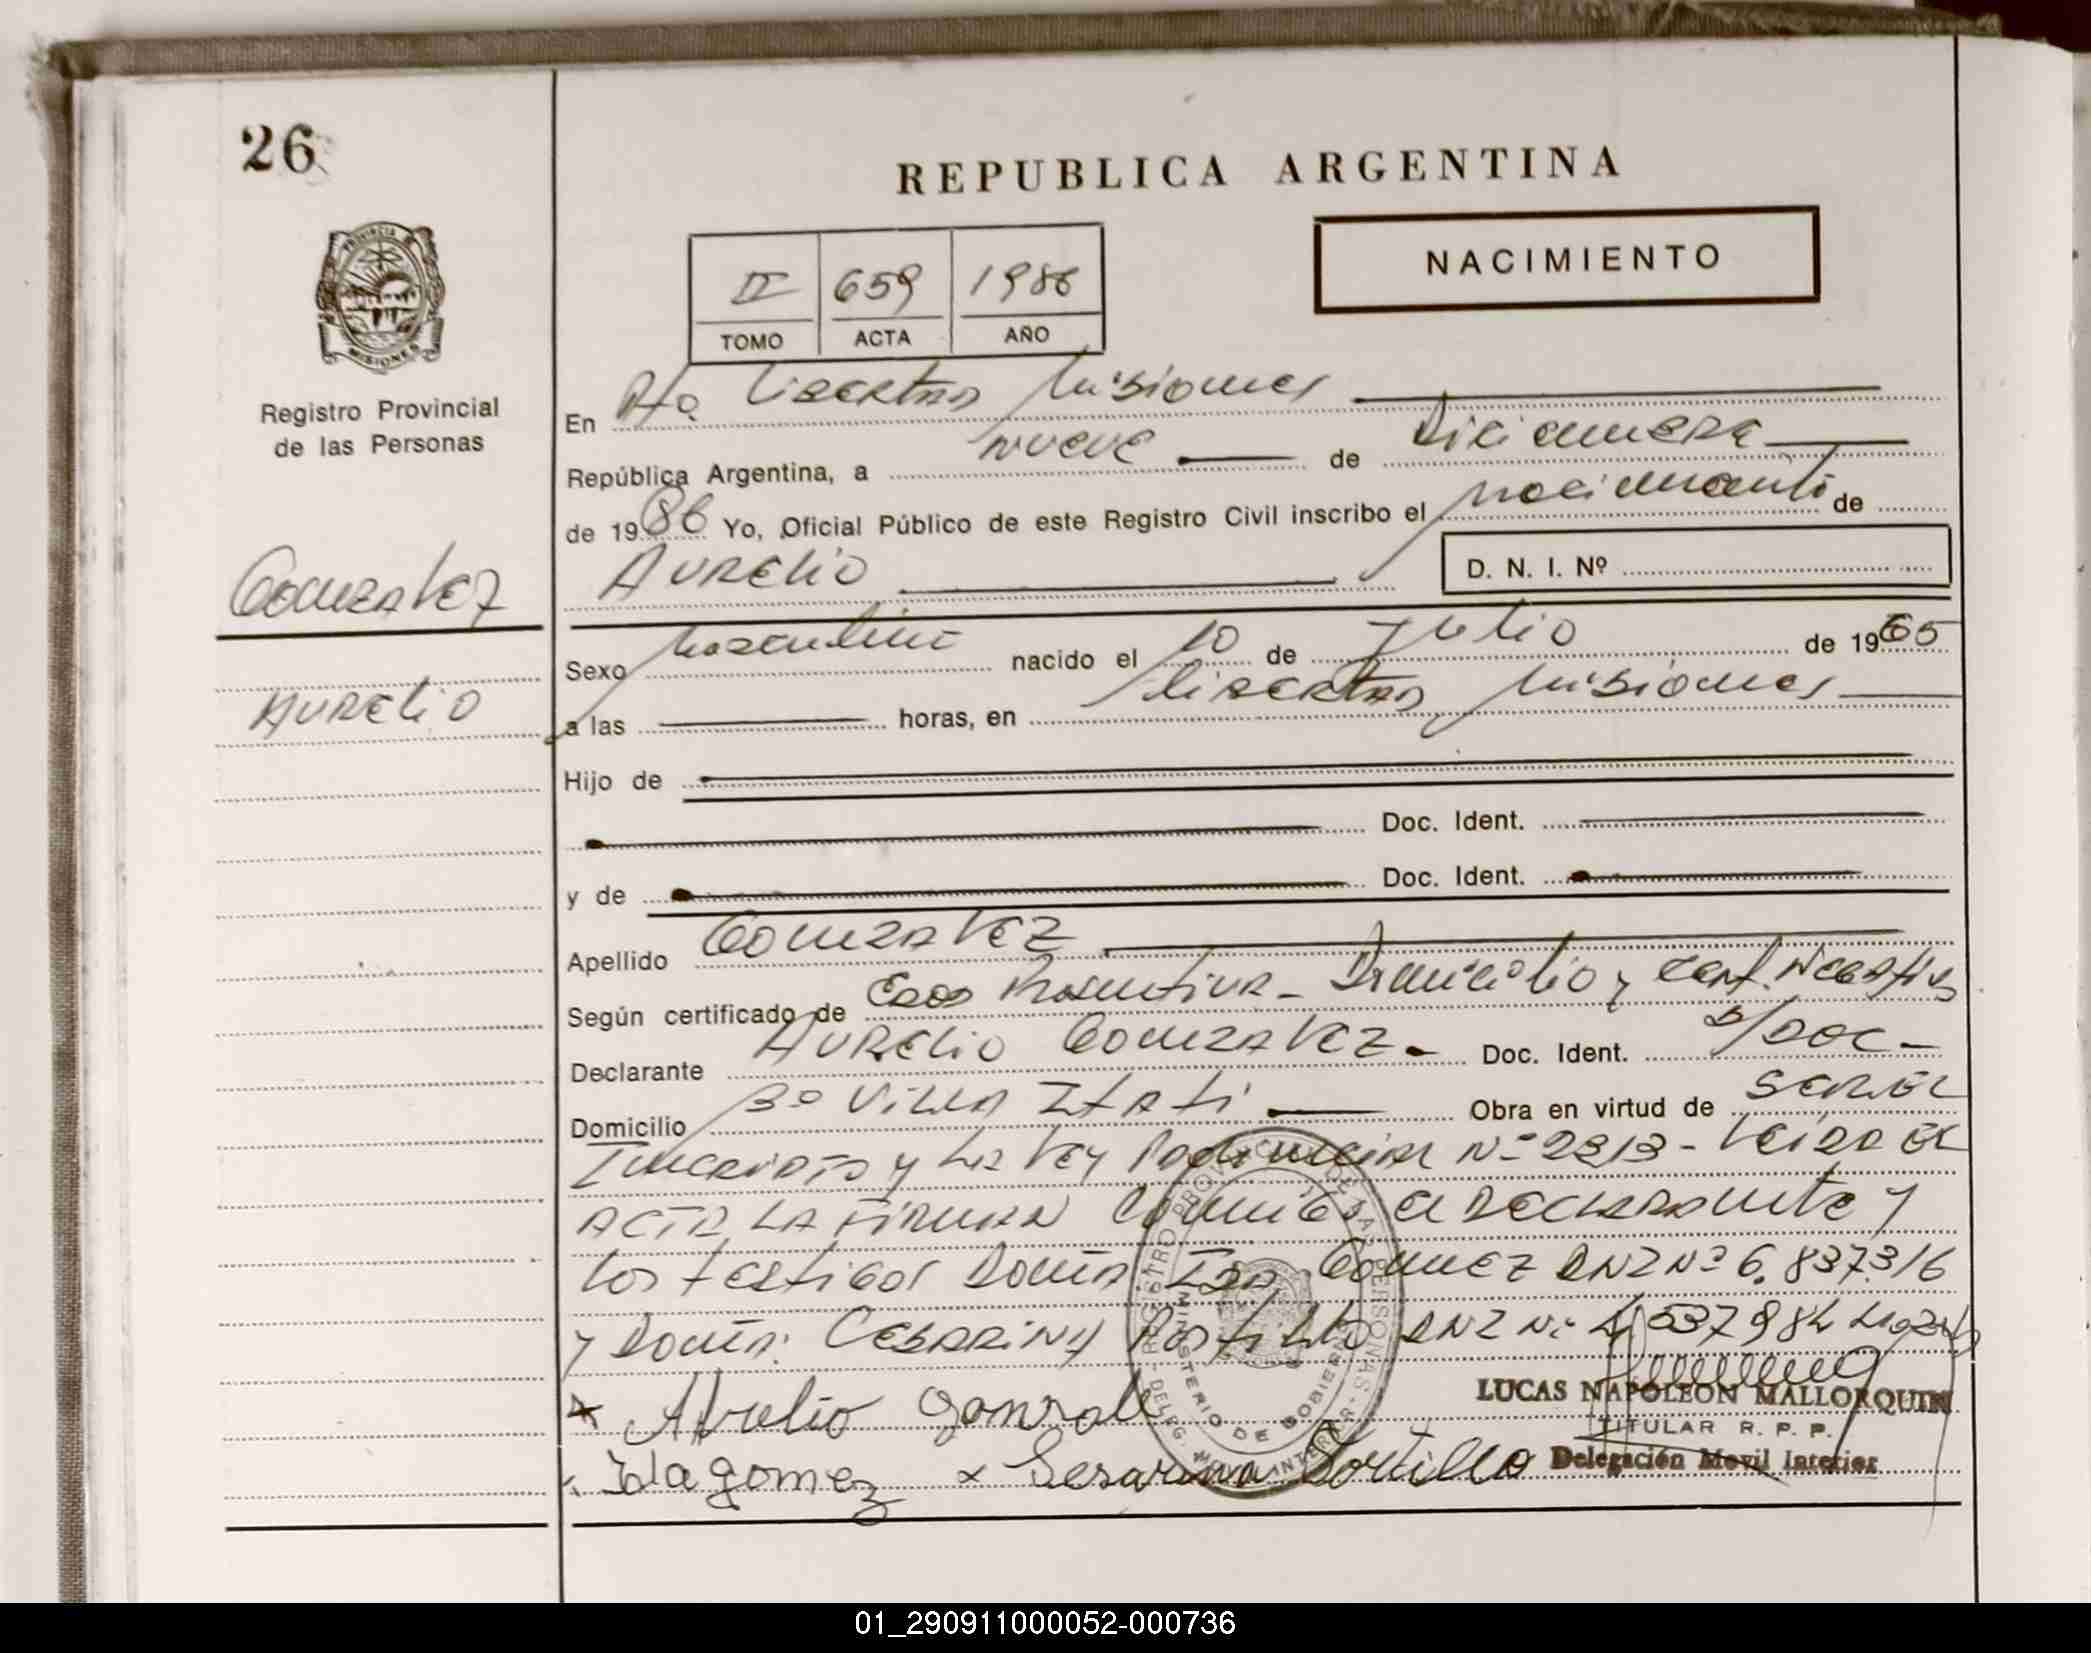 26
REPUBLICA ARGENTINA
NACIMIENTO
II 659 1986
TOMO ACTA AÑO
PROVINCIA DE MISIONES
Registro Provincial
de las Personas
En Pto Libertad Misiones
República Argentina, a nueve de Diciembre
de 1986 Yo, Oficial Público de este Registro Civil inscribo el nacimiento de
Aurelio D. N. I. Nº
Gonzalez
Aurelio
Sexo Masculino nacido el 10 de Julio de 1965
a las horas, en Libertad Misiones
Hijo de
Doc. Ident.
y de Doc. Ident.
Apellido Gonzalez
Según certificado de Edad Presuntiva - Domicilio y Cert. Negativo
Declarante Aurelio Gonzalez - Doc. Ident. s/Doc -
Domicilio Bº Villa Itati Obra en virtud de ser el
Inscripto y la Ley Nº 2313 - Leida el
Acta la firman Conmigo el Declarante y
los testigos Doña Ida Gomez DNI Nº 6.837.316
y Doña Cesarina Portillo DNI Nº 4.537.984
Aurelio Gonzalez
LUCAS NAPOLEON MALLORQUIN
TITULAR R. P. P.
Delegación Movil Interior
Ida gomez x Sesarina Portillo
REGISTRO PROVINCIAL DE LAS PERSONAS
MINISTERIO DE GOBIERNO
DELEG. MOVIL INTERIOR
01_290911000052-000736